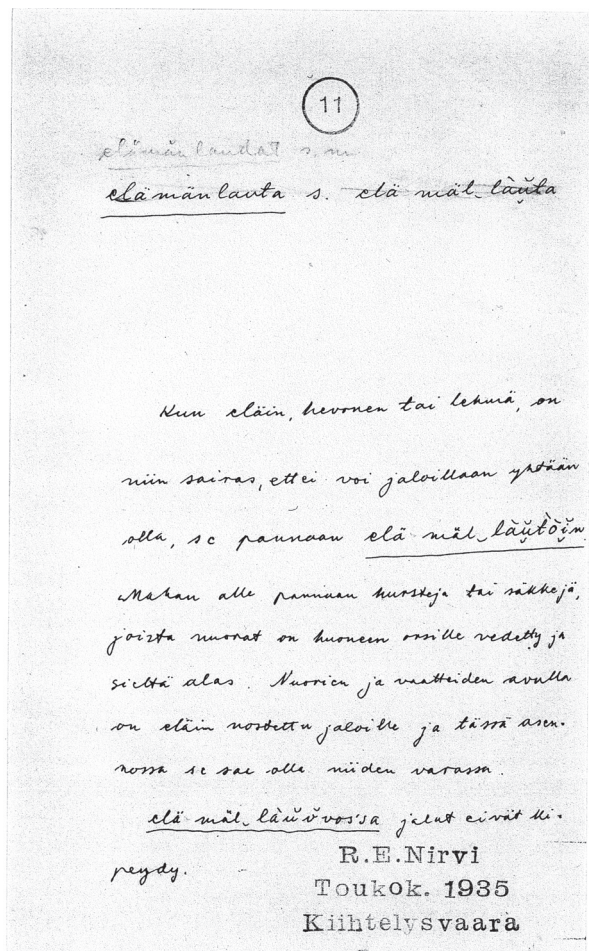 11
elämänlaudat s. m.
elämänlauta s. elä mäl‿làŭta
Kun eläin, hevonen tai lehmä, on
niin sairas, ettei voi jaloillaan yhtään
olla, se pannaan elä mäl‿làŭtòĭn
Mahan alle pannaan hursteja tai säkkejä,
joista nuorat on huoneen orsille vedetty ja
sieltä alas. Nuorien ja vaatteiden avulla
on eläin nostettu jaloille ja tässä asen-
nossa se saa olla niiden varassa.
elä mäl‿làŭvvossa jalat eivät ki-
peydy.
R.E.Nirvi
Toukok. 1935
Kiihtelysvaara